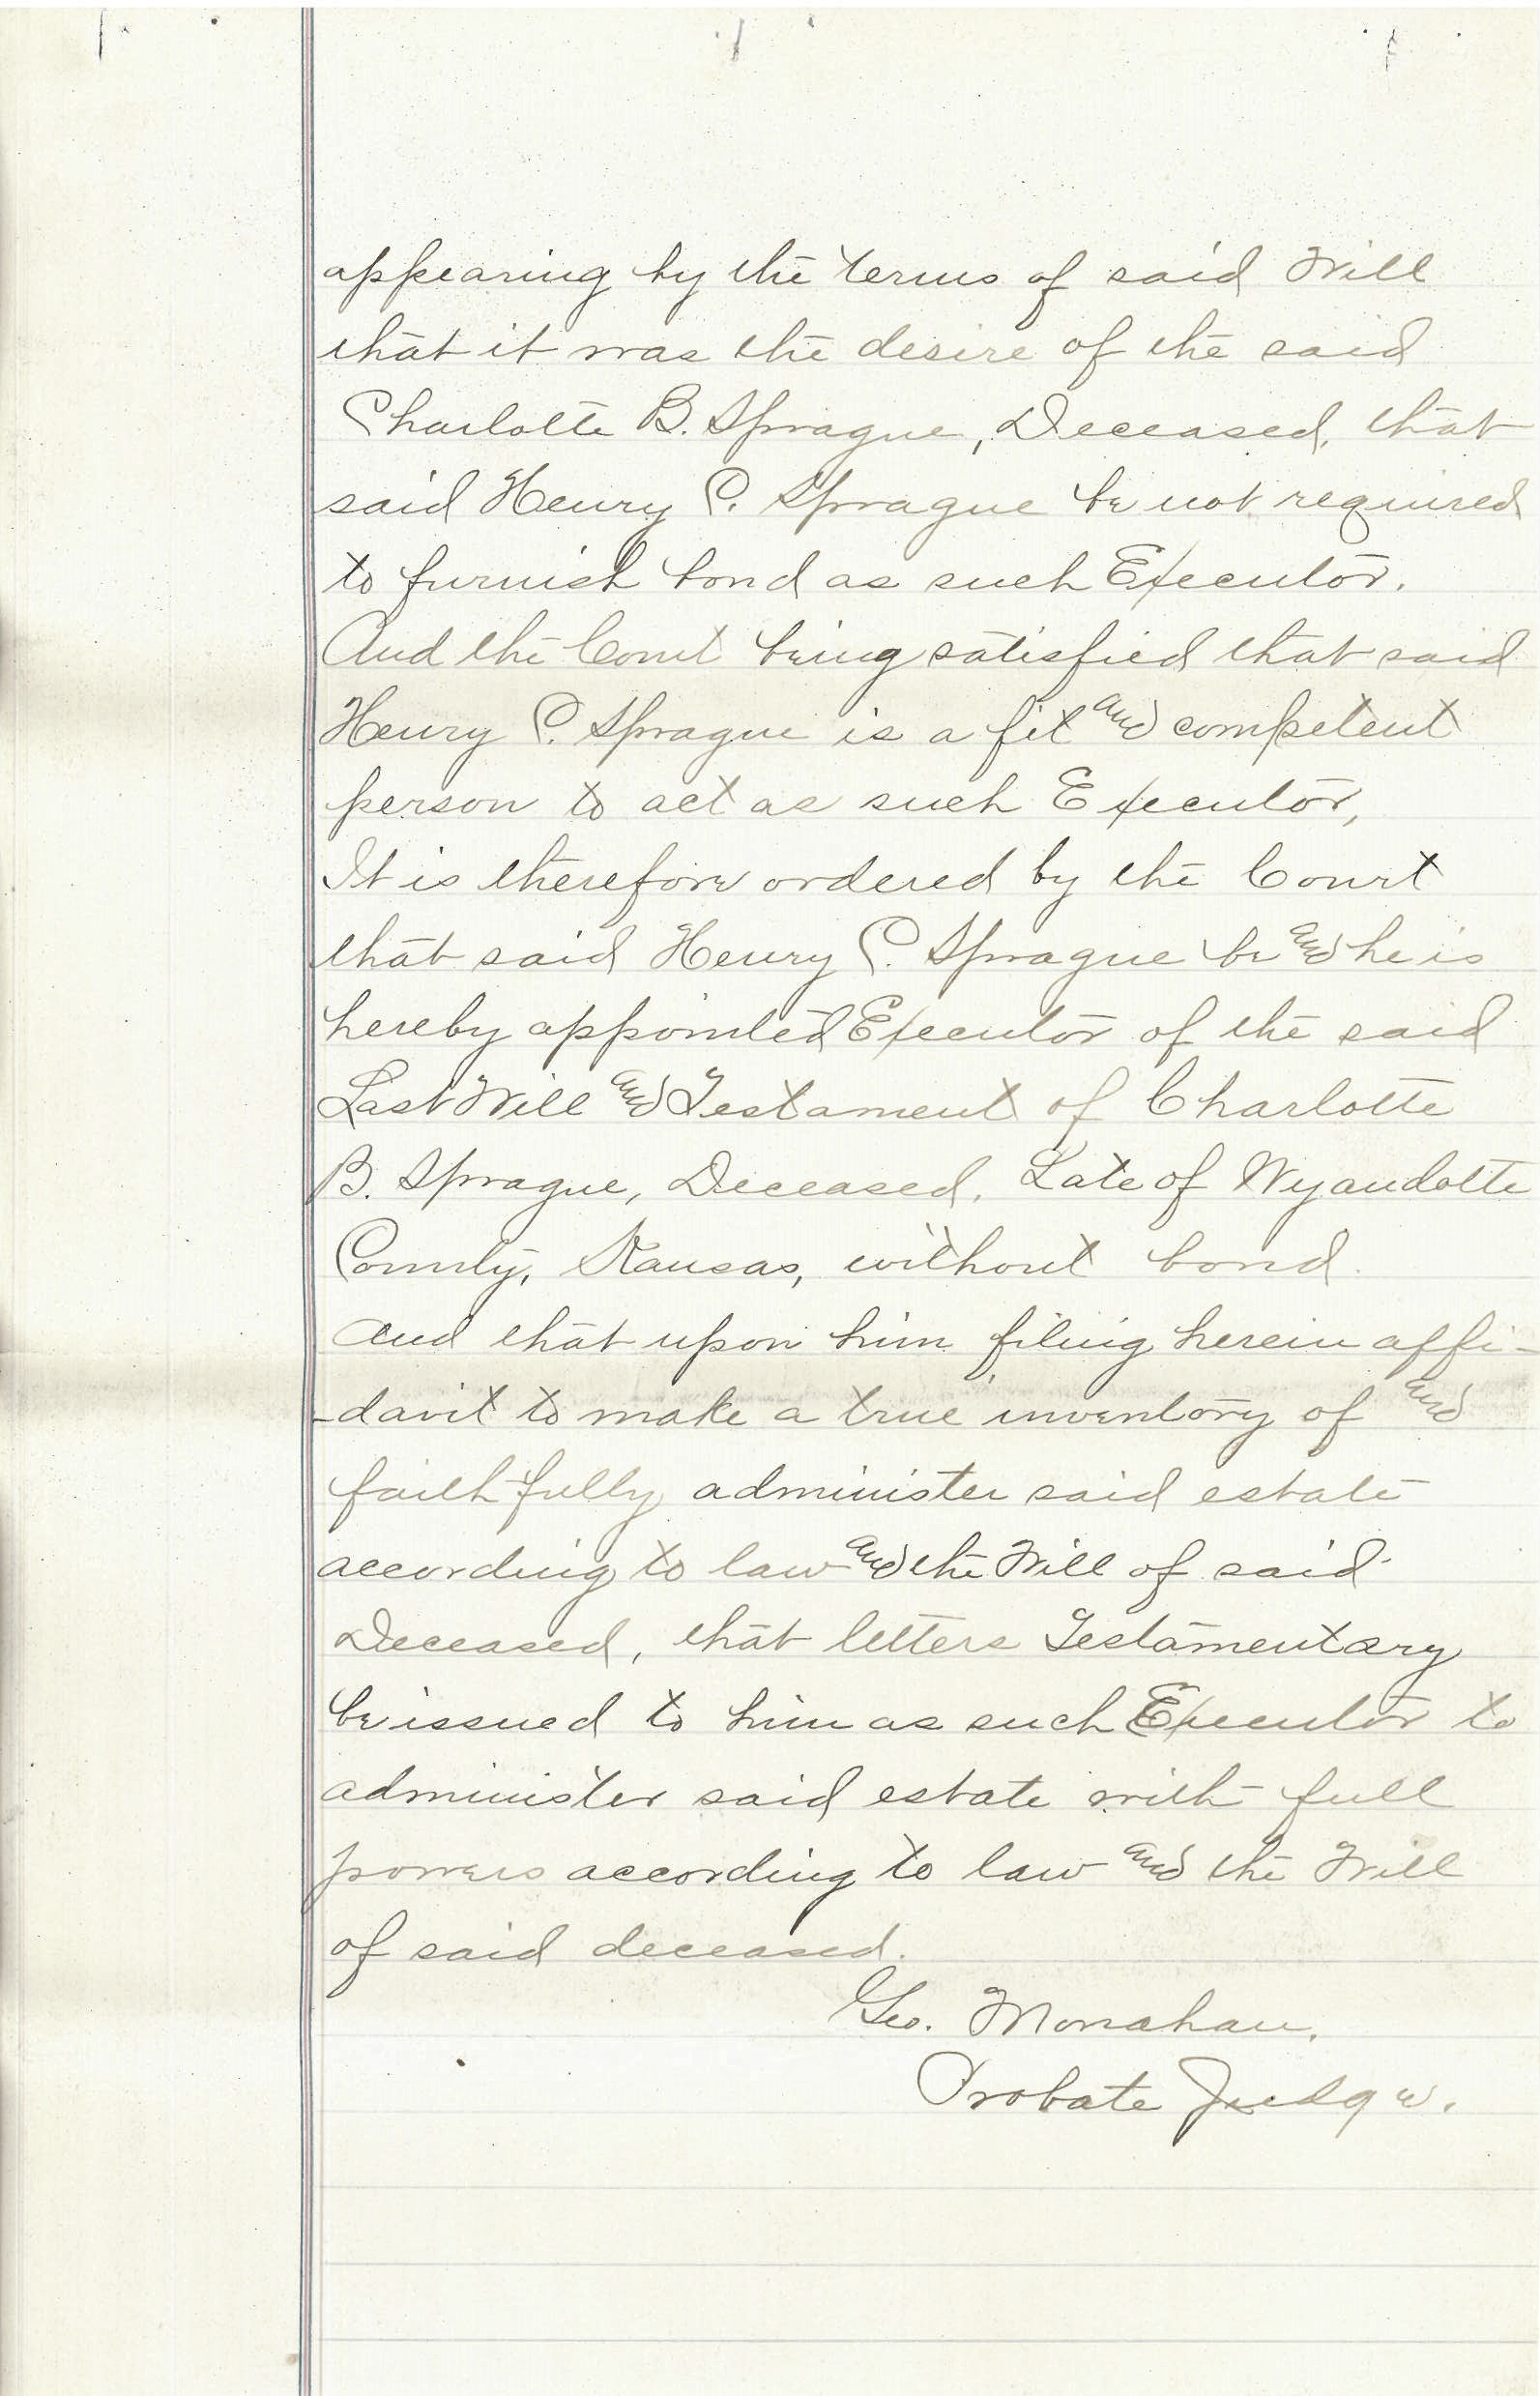 appearing by the terms of said Will
that it was the desire of the said
Charlotte B. Sprague, Deceased, that
said Henry C. Sprague be not required
to furnish bond as such Executor.
And the Court being satisfied that said
Henry C. Sprague is a fit and competent
person to act as such Executor,
It is therefore ordered by the Court
that said Henry C. Sprague be and he is
hereby appointed Executor of the said
Last Will and Testament of Charlotte
B. Sprague, Deceased, Late of Wyandotte
County, Kansas, without bond.
And that upon him filing herein affi-
-davit to make a true inventory of and
faithfully administer said estate
according to law and the Will of said
Deceased, that letters Testamentary
be issued to him as such Executor to
administer said estate with full
powers according to law and the Will
of said deceased.
Geo. Monahan.
Probate Judge.